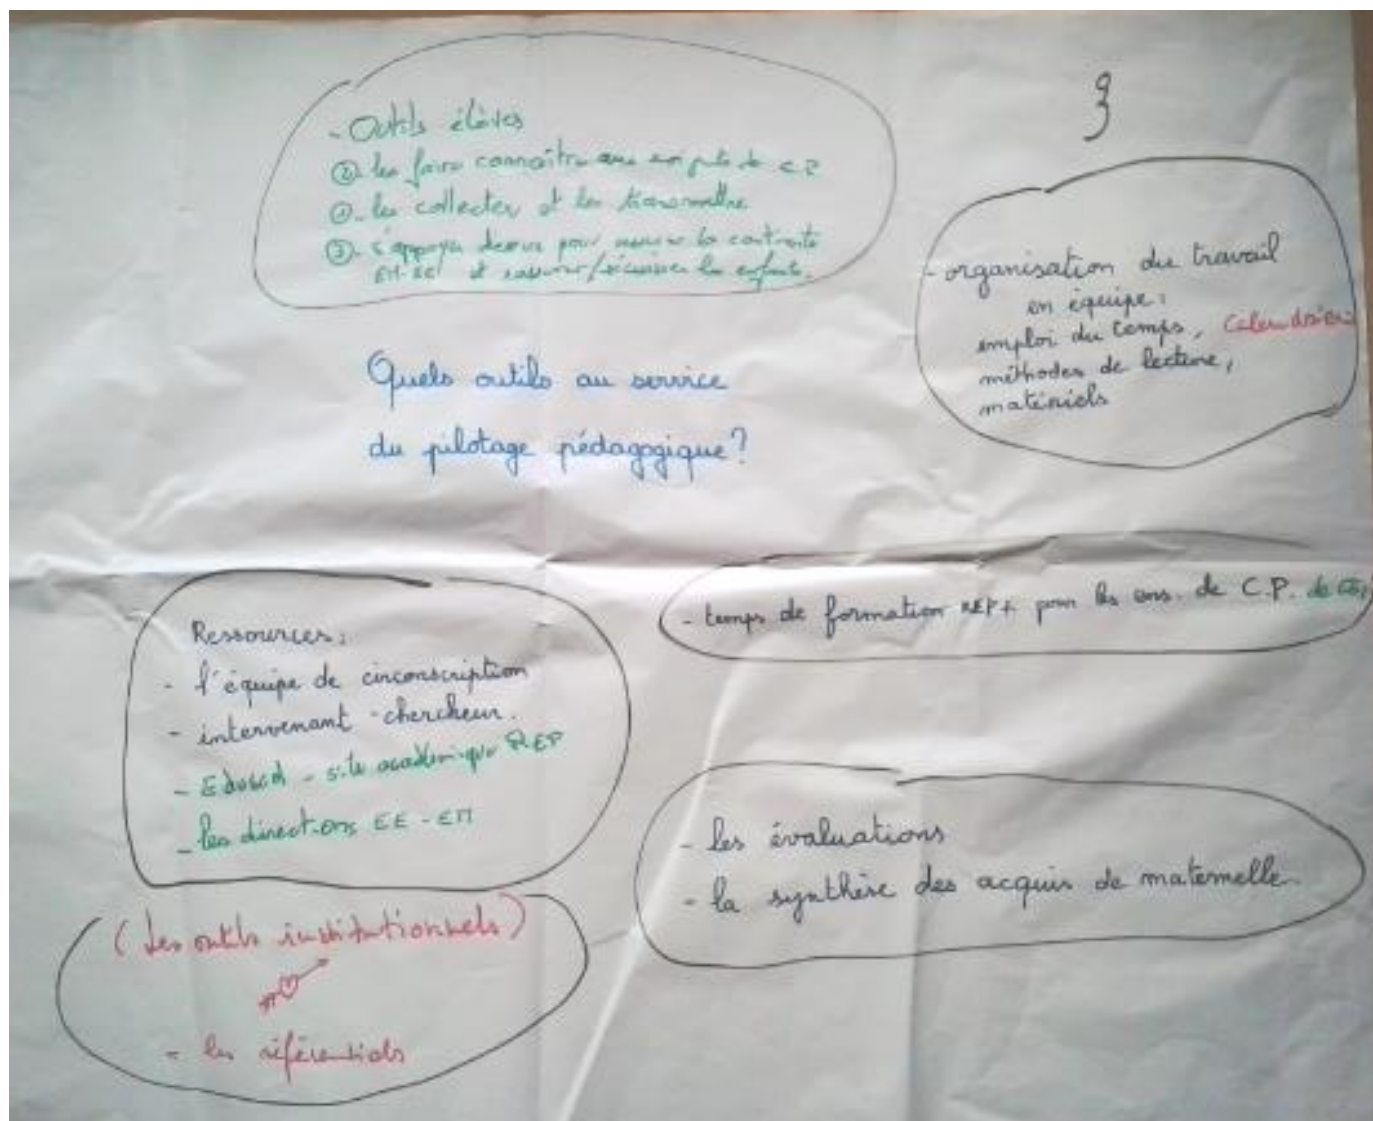 - Outils élèves
② les faire connaître aux de C2
① - les collecter et les transmettre
③ - s'appuyer dessus pour assurer la
EM-EE et rassurer/sécuriser les enfants.
3
- organisation du travail
en équipe:
emploi du temps, Calendrier
méthodes de lecture,
matériels
Quels outils au service
du pilotage pédagogique?
- temps de formation REP+ pour les ens. de C.P. de
Ressources:
- l'équipe de circonscription
- intervenant-chercheur.
- Eduscol - site académique REP
- les directions EE - EM
- les évaluations
- la synthèse des acquis de maternelle.
(Les outils institutionnels)
- les référentiels